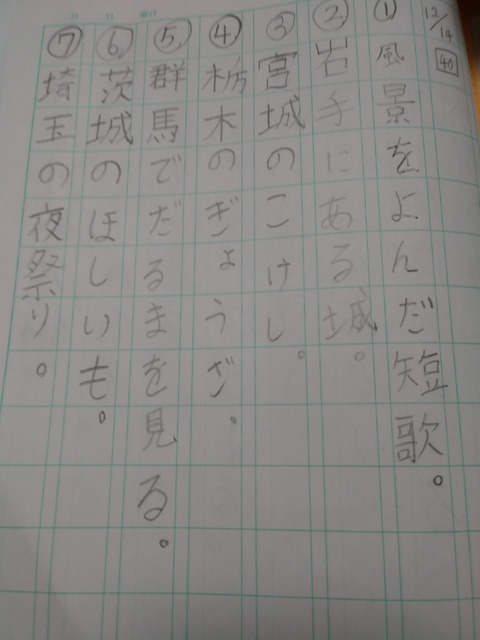 12/14
40
① 風景をよんだ短歌。
② 岩手にある城。
③ 宮城のこけし。
④ 栃木のぎょうざ。
⑤ 群馬でだるまを見る。
⑥ 茨城のほしいも。
⑦ 埼玉の夜祭り。